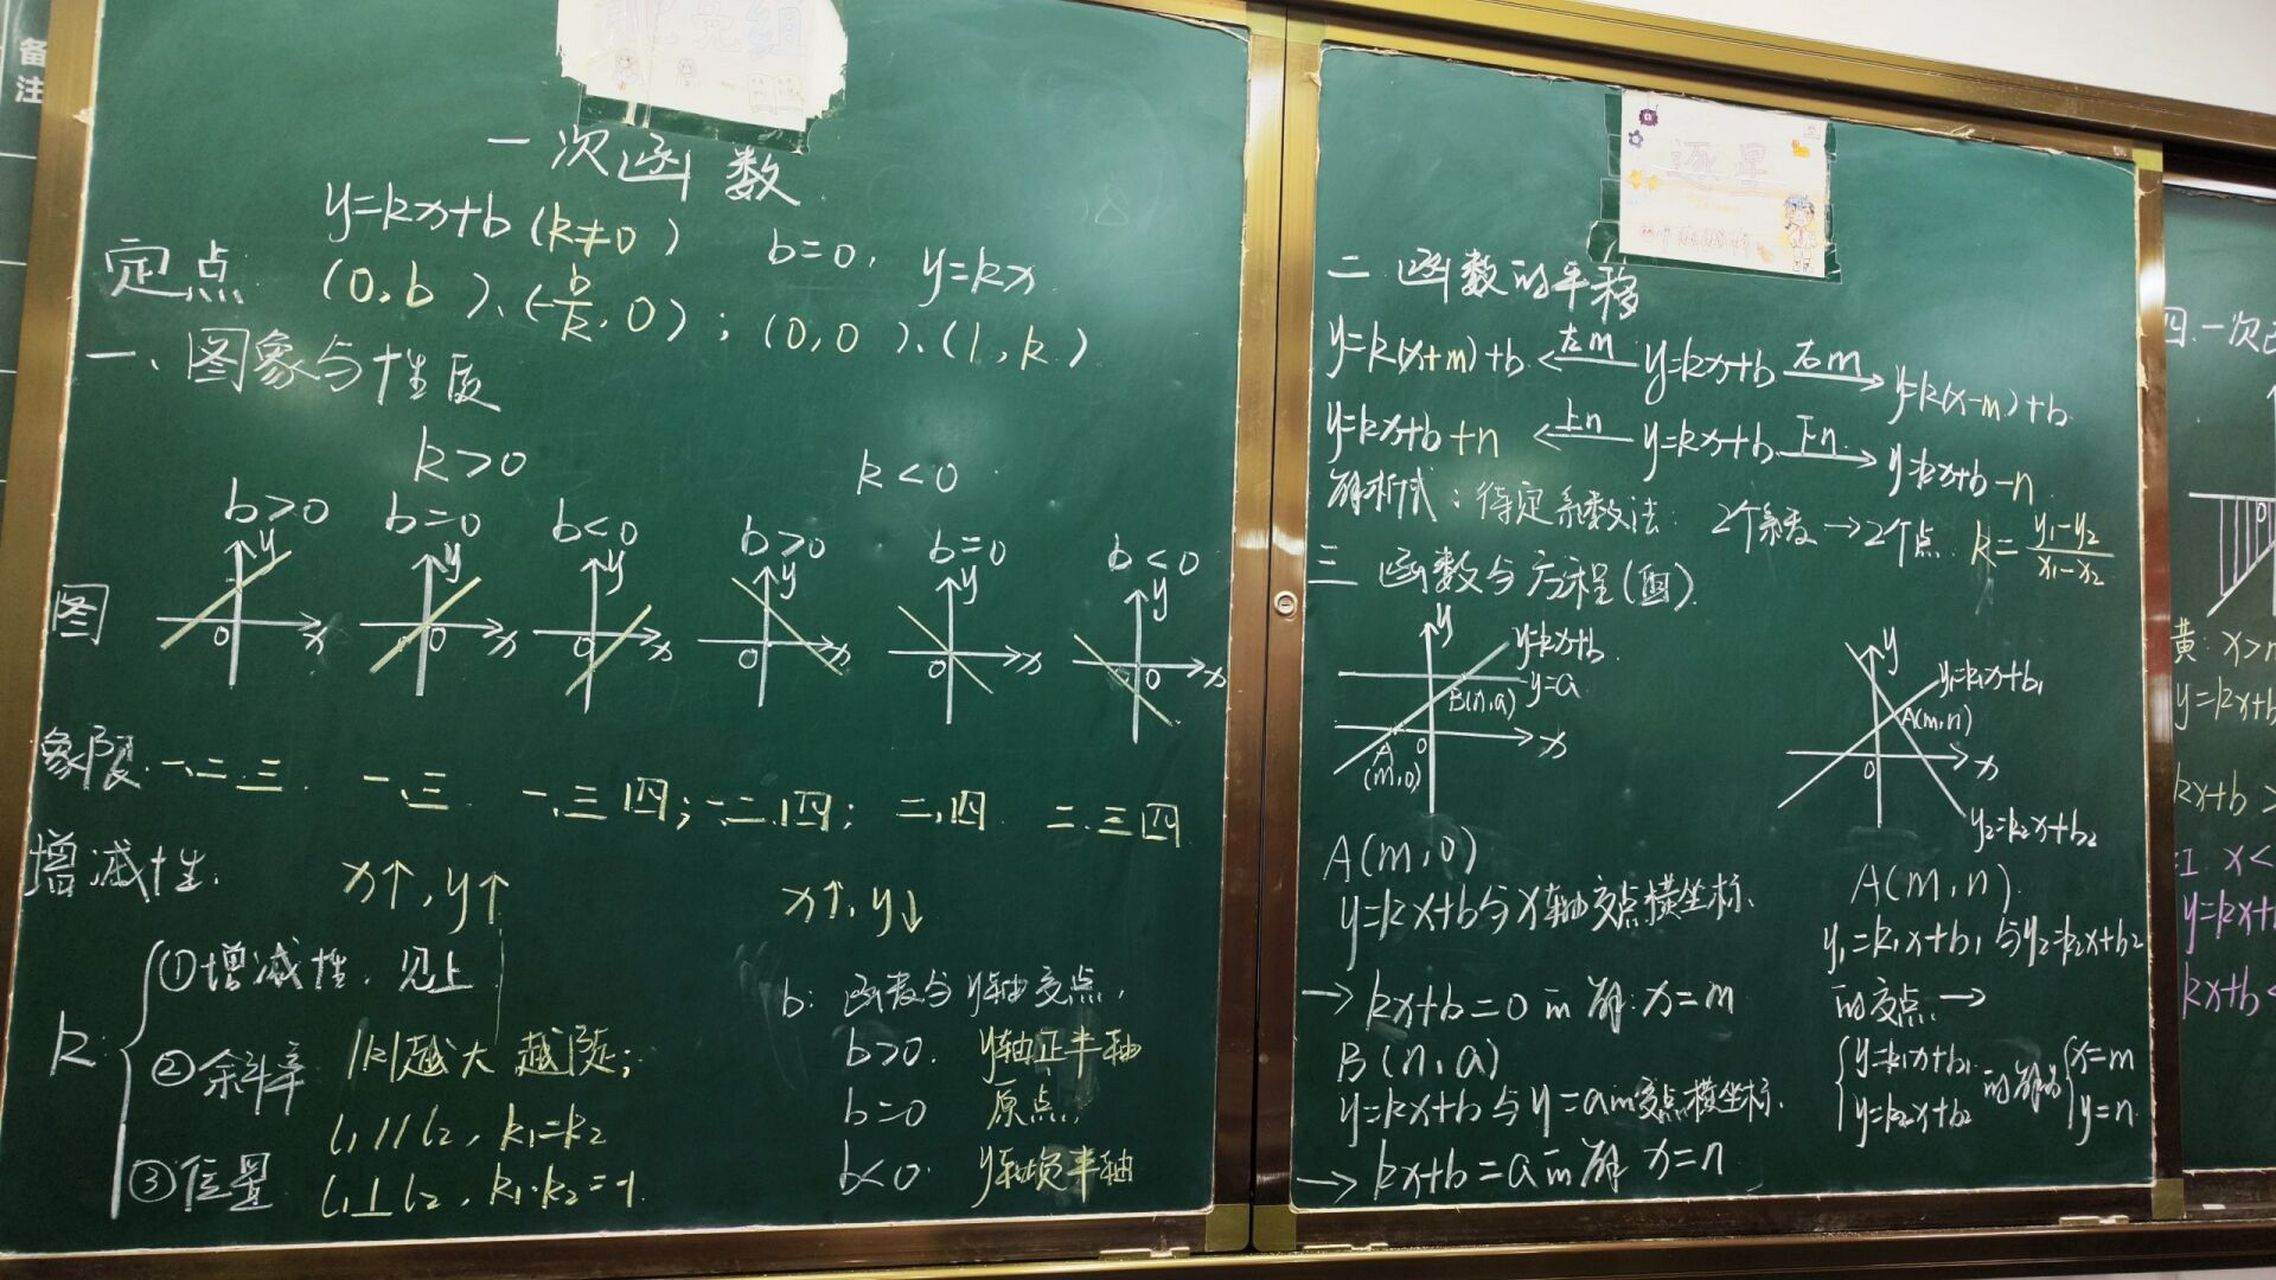 备
注
一次函数
y=kx+b (k≠0) b=0, y=kx
定点 (0,b)、(-b/k,0); (0,0)、(1,k)
一、图象与性质
k>0 k<0
b>0 b=0 b<0 b>0 b=0 b<0
图
y y y y y y
0 x 0 x 0 x 0 x 0 x 0 x
象限 一、二、三 一、三 一、三四; 一、二、四; 二、四 二、三四
增减性: x↑, y↑ x↑, y↓
k:
①增减性, 见上
②余斜率 |k|越大 越陡;
③位置 l₁//l₂, k₁=k₂
l₁⊥l₂, k₁·k₂=-1
b: 函数与y轴交点,
b>0. y轴正半轴
b=0 原点,
b<0. y轴负半轴
逐星
二 函数的平移
y=k(x+m)+b ←左m y=kx+b 右m→ y=k(x-m)+b
y=kx+b+n ←上n y=kx+b 下n→ y=kx+b-n
解析式: 待定系数法: 2个系数→2个点 k=(y₁-y₂)/(x₁-x₂)
三 函数与方程(组)
y y=kx+b
y=a
B(n,a)
A 0 x
(m,0)
y y₁=k₁x+b₁
A(m,n)
0 x
y₂=k₂x+b₂
A(m,0)
y=kx+b与x轴交点横坐标、
→ kx+b=0的解: x=m
B(n,a)
y=kx+b与y=a的交点横坐标.
→ kx+b=a的解 x=n
A(m,n).
y₁=k₁x+b₁与y₂=k₂x+b₂
的交点 →
{y=k₁x+b₁ 的解为 {x=m
{y=k₂x+b₂ {y=n
四.一次
0
黄: x>
y=kx+b
kx+b>
x<
y=kx+
kx+b<